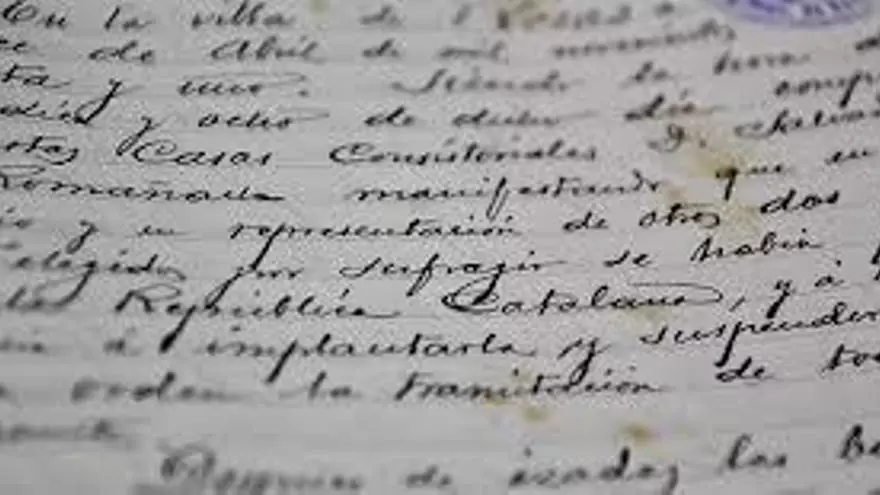 En la villa de
de Abril de mil novecientos
ta y uno. Siendo la hora
y ocho de dicho día comp
Casas Consistoriales D. Salvad
Romañach manifestando que en
y en representación de otros dos
elegidos por sufragio se había
República Catalana, y á
á implantarla y suspender
orden la tramitación de to
de izadas las ba